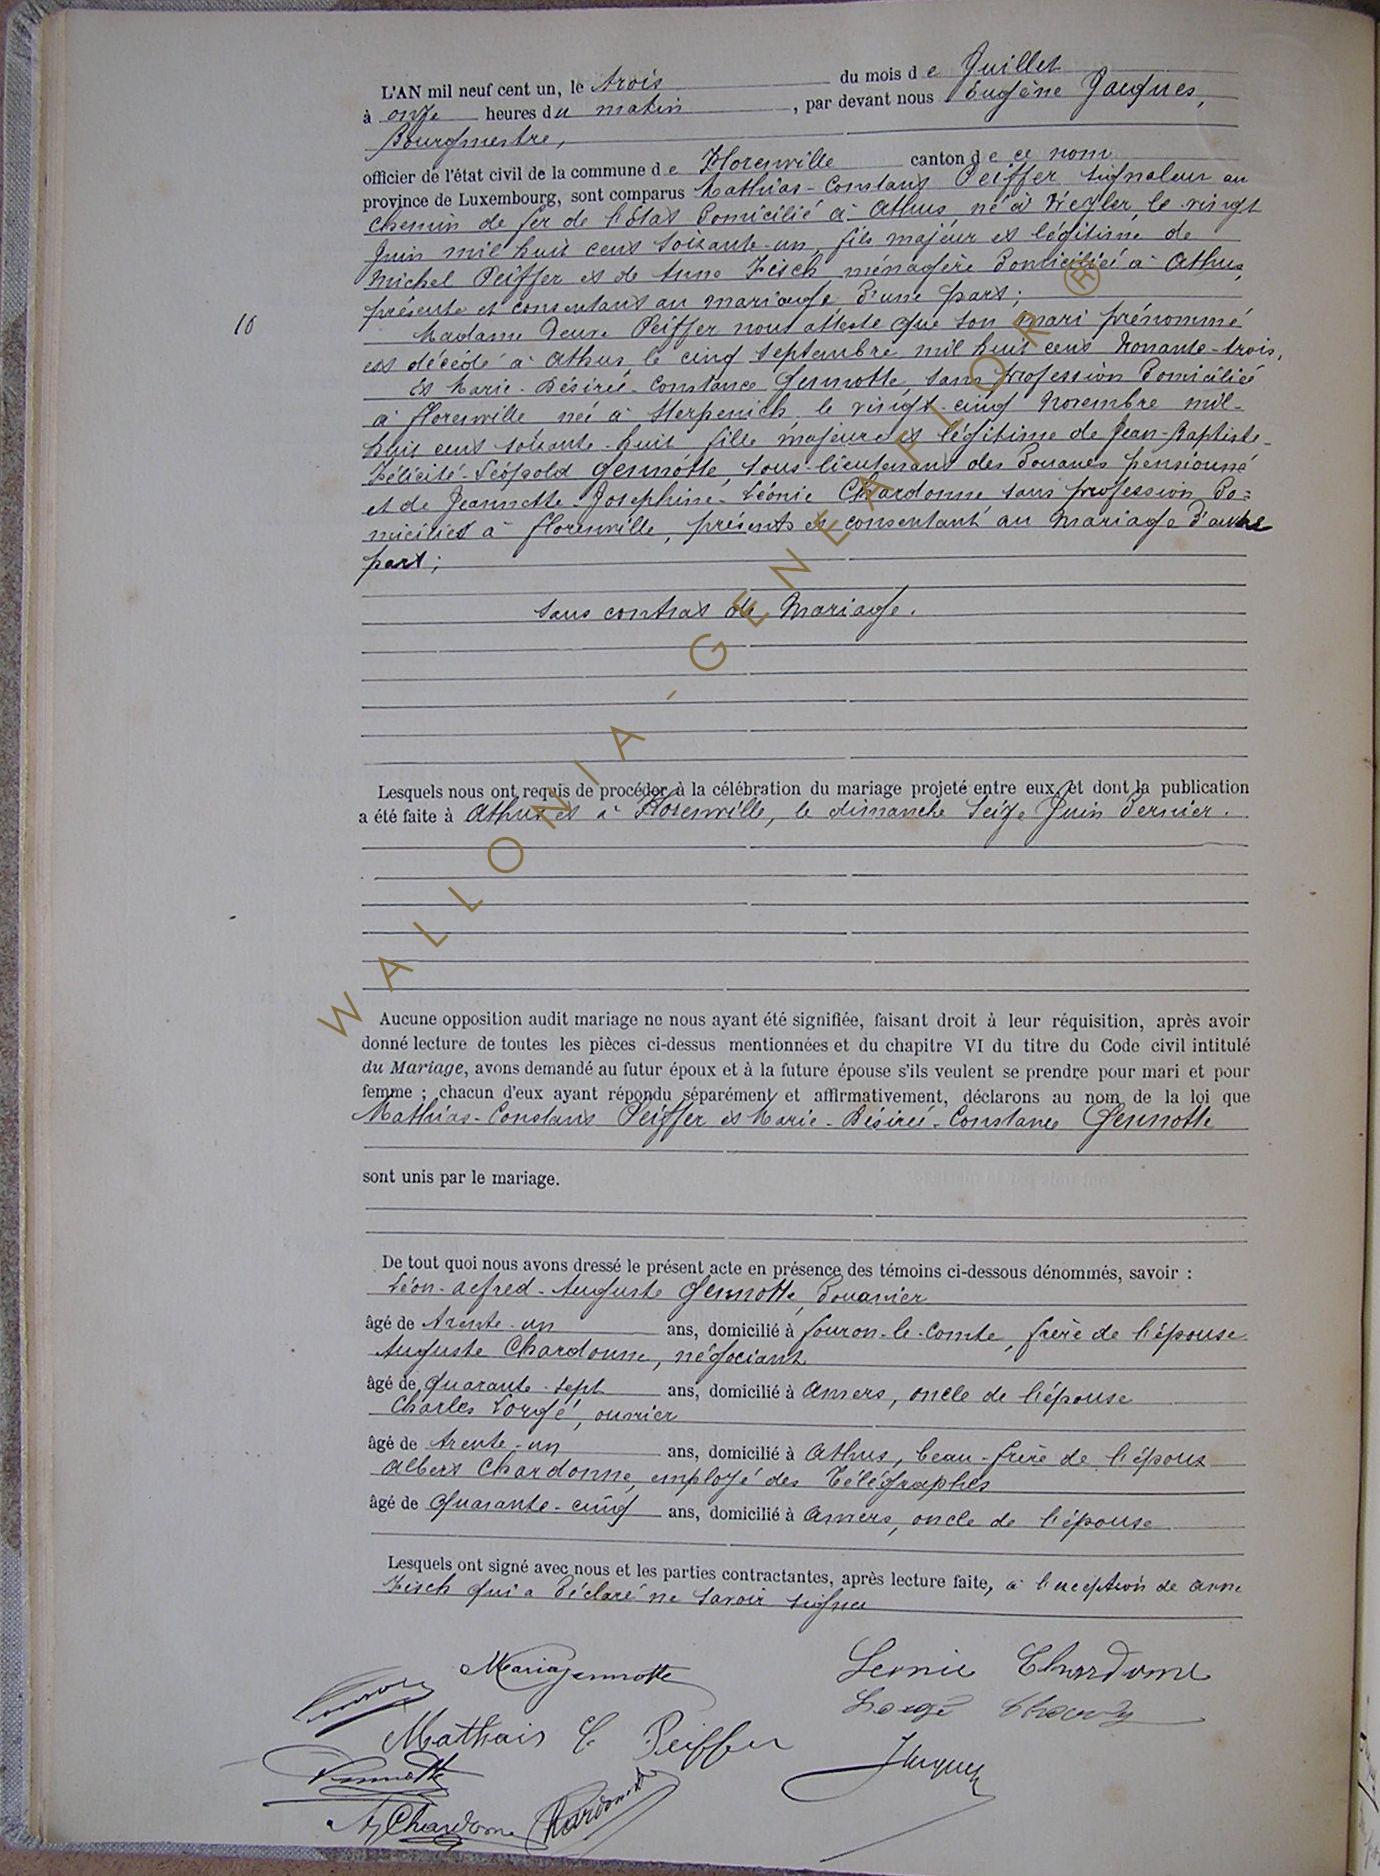 L'AN mil neuf cent un, le trois du mois de Juillet
à onze heures du matin, par devant nous Eugène Jacques,
Bourgmestre,
officier de l'état civil de la commune de Florenville canton de ce nom
province de Luxembourg, sont comparus Mathias-Constant Peiffer signaleur au
chemin de fer de l'Etat domicilié à Athus, né à le vingt
Juin mil huit cent soixante-un, fils majeur et légitime de
Michel Peiffer et de Anne Fisch ménagère domiciliée à Athus,
présente et consentant au mariage d'une part;
10
Madame Veuve Peiffer nous atteste que son mari prénommé
est décédé à Athus, le cinq septembre mil huit cent nonante-trois,
Et Marie-Désirée-Constance Gennotte, sans profession domiciliée
à Florenville née à Sterpenich le vingt-cinq Novembre mil-
huit cent soixante-huit fille majeure et légitime de Jean-Baptiste-
Félicité-Léopold Gennotte, sous-lieutenant des douanes pensionné
et de Jeannette-Josephine-Léonie Chardonne sans profession do=
miciliés à Florenville, présents et consentant au mariage d'autre
part;
Sans contrat de Mariage.
Lesquels nous ont requis de procéder à la célébration du mariage projeté entre eux, et dont la publication
a été faite à Athus et à Florenville, le dimanche seize Juin dernier.
Aucune opposition audit mariage ne nous ayant été signifiée, faisant droit à leur réquisition, après avoir
donné lecture de toutes les pièces ci-dessus mentionnées et du chapitre VI du titre du Code civil intitulé
du Mariage, avons demandé au futur époux et à la future épouse s'ils veulent se prendre pour mari et pour
femme ; chacun d'eux ayant répondu séparément et affirmativement, déclarons au nom de la loi que
Mathias-Constant Peiffer et Marie-Désirée-Constance Gennotte
sont unis par le mariage.
De tout quoi nous avons dressé le présent acte en présence des témoins ci-dessous dénommés, savoir :
Léon-Alfred-Auguste Gennotte, douanier
âgé de trente-un ans, domicilié à Fouron-le-Comte, frère de l'épouse
Auguste Chardonne, négociant
âgé de quarante-sept ans, domicilié à Anvers, oncle de l'épouse
Charles Lorgé, ouvrier
âgé de trente-un ans, domicilié à Athus, beau-frère de l'époux
Albert Chardonne, employé des Télégraphes
âgé de quarante-cinq ans, domicilié à Anvers, oncle de l'épouse
Lesquels ont signé avec nous et les parties contractantes, après lecture faite, à l'exception de Anne
Fisch qui a déclaré ne savoir signer
Maria Gennotte
Leonie Chardonne
Mathais C Peiffer
Jacques
Gennotte
A Chardonne Chardonne
WALLONIA-GENEAFLOR ®